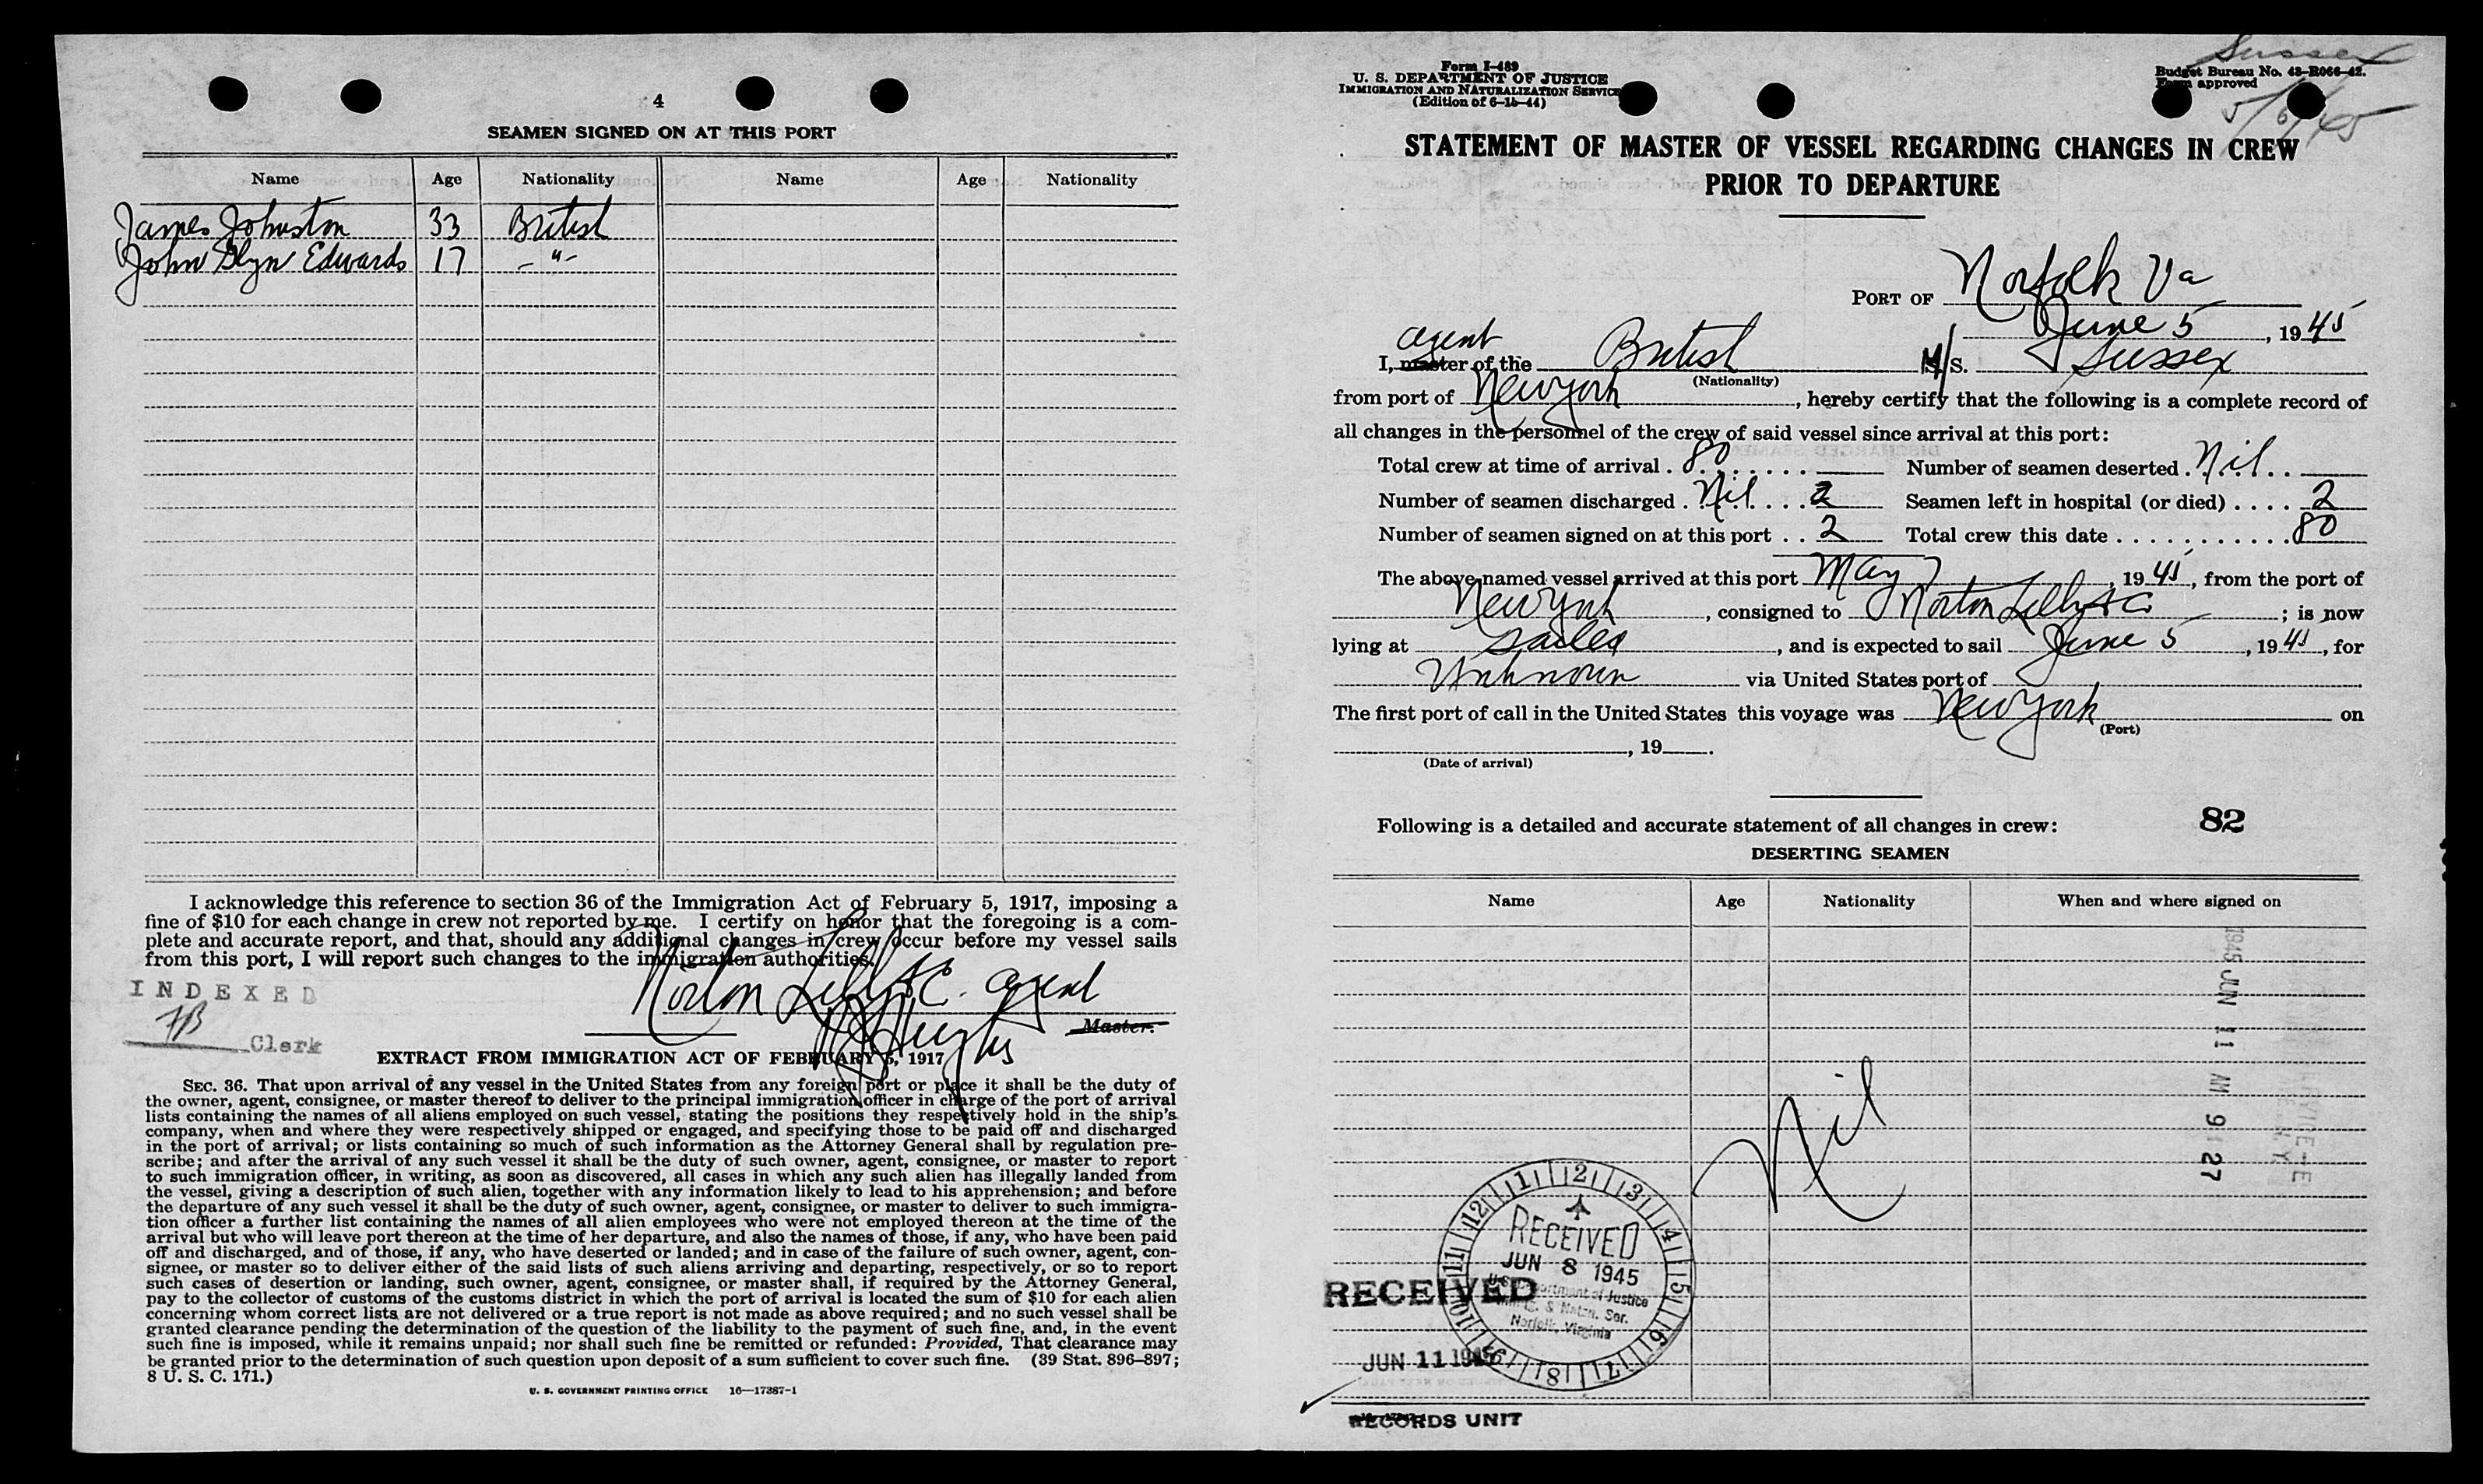 4
SEAMEN SIGNED ON AT THIS PORT
Name Age Nationality Name Age Nationality
James Johnston 33 British
John Glyn Edwards 17 - " -
I acknowledge this reference to section 36 of the Immigration Act of February 5, 1917, imposing a
fine of $10 for each change in crew not reported by me. I certify on honor that the foregoing is a com-
plete and accurate report, and that, should any additional changes in crew occur before my vessel sails
from this port, I will report such changes to the immigration authorities.
Norton Lilly & C. agent
Master.
INDEXED
Clerk
EXTRACT FROM IMMIGRATION ACT OF FEBRUARY 5, 1917
SEC. 36. That upon arrival of any vessel in the United States from any foreign port or place it shall be the duty of
the owner, agent, consignee, or master thereof to deliver to the principal immigration officer in charge of the port of arrival
lists containing the names of all aliens employed on such vessel, stating the positions they respectively hold in the ship's
company, when and where they were respectively shipped or engaged, and specifying those to be paid off and discharged
in the port of arrival; or lists containing so much of such information as the Attorney General shall by regulation pre-
scribe; and after the arrival of any such vessel it shall be the duty of such owner, agent, consignee, or master to report
to such immigration officer, in writing, as soon as discovered, all cases in which any such alien has illegally landed from
the vessel, giving a description of such alien, together with any information likely to lead to his apprehension; and before
the departure of any such vessel it shall be the duty of such owner, agent, consignee, or master to deliver to such immigra-
tion officer a further list containing the names of all alien employees who were not employed thereon at the time of the
arrival but who will leave port thereon at the time of her departure, and also the names of those, if any, who have been paid
off and discharged, and of those, if any, who have deserted or landed; and in case of the failure of such owner, agent, con-
signee, or master so to deliver either of the said lists of such aliens arriving and departing, respectively, or so to report
such cases of desertion or landing, such owner, agent, consignee, or master shall, if required by the Attorney General,
pay to the collector of customs of the customs district in which the port of arrival is located the sum of $10 for each alien
concerning whom correct lists are not delivered or a true report is not made as above required; and no such vessel shall be
granted clearance pending the determination of the question of the liability to the payment of such fine, and, in the event
such fine is imposed, while it remains unpaid; nor shall such fine be remitted or refunded: Provided, That clearance may
be granted prior to the determination of such question upon deposit of a sum sufficient to cover such fine. (39 Stat. 896-897;
8 U. S. C. 171.)
U. S. GOVERNMENT PRINTING OFFICE 16—17387-1
Sussex
Form I-489
U. S. DEPARTMENT OF JUSTICE
IMMIGRATION AND NATURALIZATION SERVICE
(Edition of 6-15-44)
Budget Bureau No. 43-R066-42.
Form approved
5/6/45
STATEMENT OF MASTER OF VESSEL REGARDING CHANGES IN CREW
PRIOR TO DEPARTURE
PORT OF Norfolk Va
June 5, 1945
agent
I, master of the British M/S. Sussex
(Nationality)
from port of New York, hereby certify that the following is a complete record of
all changes in the personnel of the crew of said vessel since arrival at this port:
Total crew at time of arrival . 80 Number of seamen deserted . Nil
Number of seamen discharged . Nil 2 Seamen left in hospital (or died) . . . . 2
Number of seamen signed on at this port . . 2 Total crew this date . . . . . . . . . . . 80
The above-named vessel arrived at this port May 7, 1945, from the port of
New York, consigned to Norton Lilly & C; is now
lying at Sailed, and is expected to sail June 5, 1945, for
Unknown via United States port of
The first port of call in the United States this voyage was New York on
(Port)
, 19 .
(Date of arrival)
Following is a detailed and accurate statement of all changes in crew: 82
DESERTING SEAMEN
Name Age Nationality When and where signed on
Nil
1945 JUN 11 AM 9 27
12 1 2 3 4 5 6 7 8 9 10 11
RECEIVED
JUN 8 1945
U.S. Department of Justice
Immig. & Natzn. Ser.
Norfolk, Virginia
RECEIVED
JUN 11 1945
RECORDS UNIT